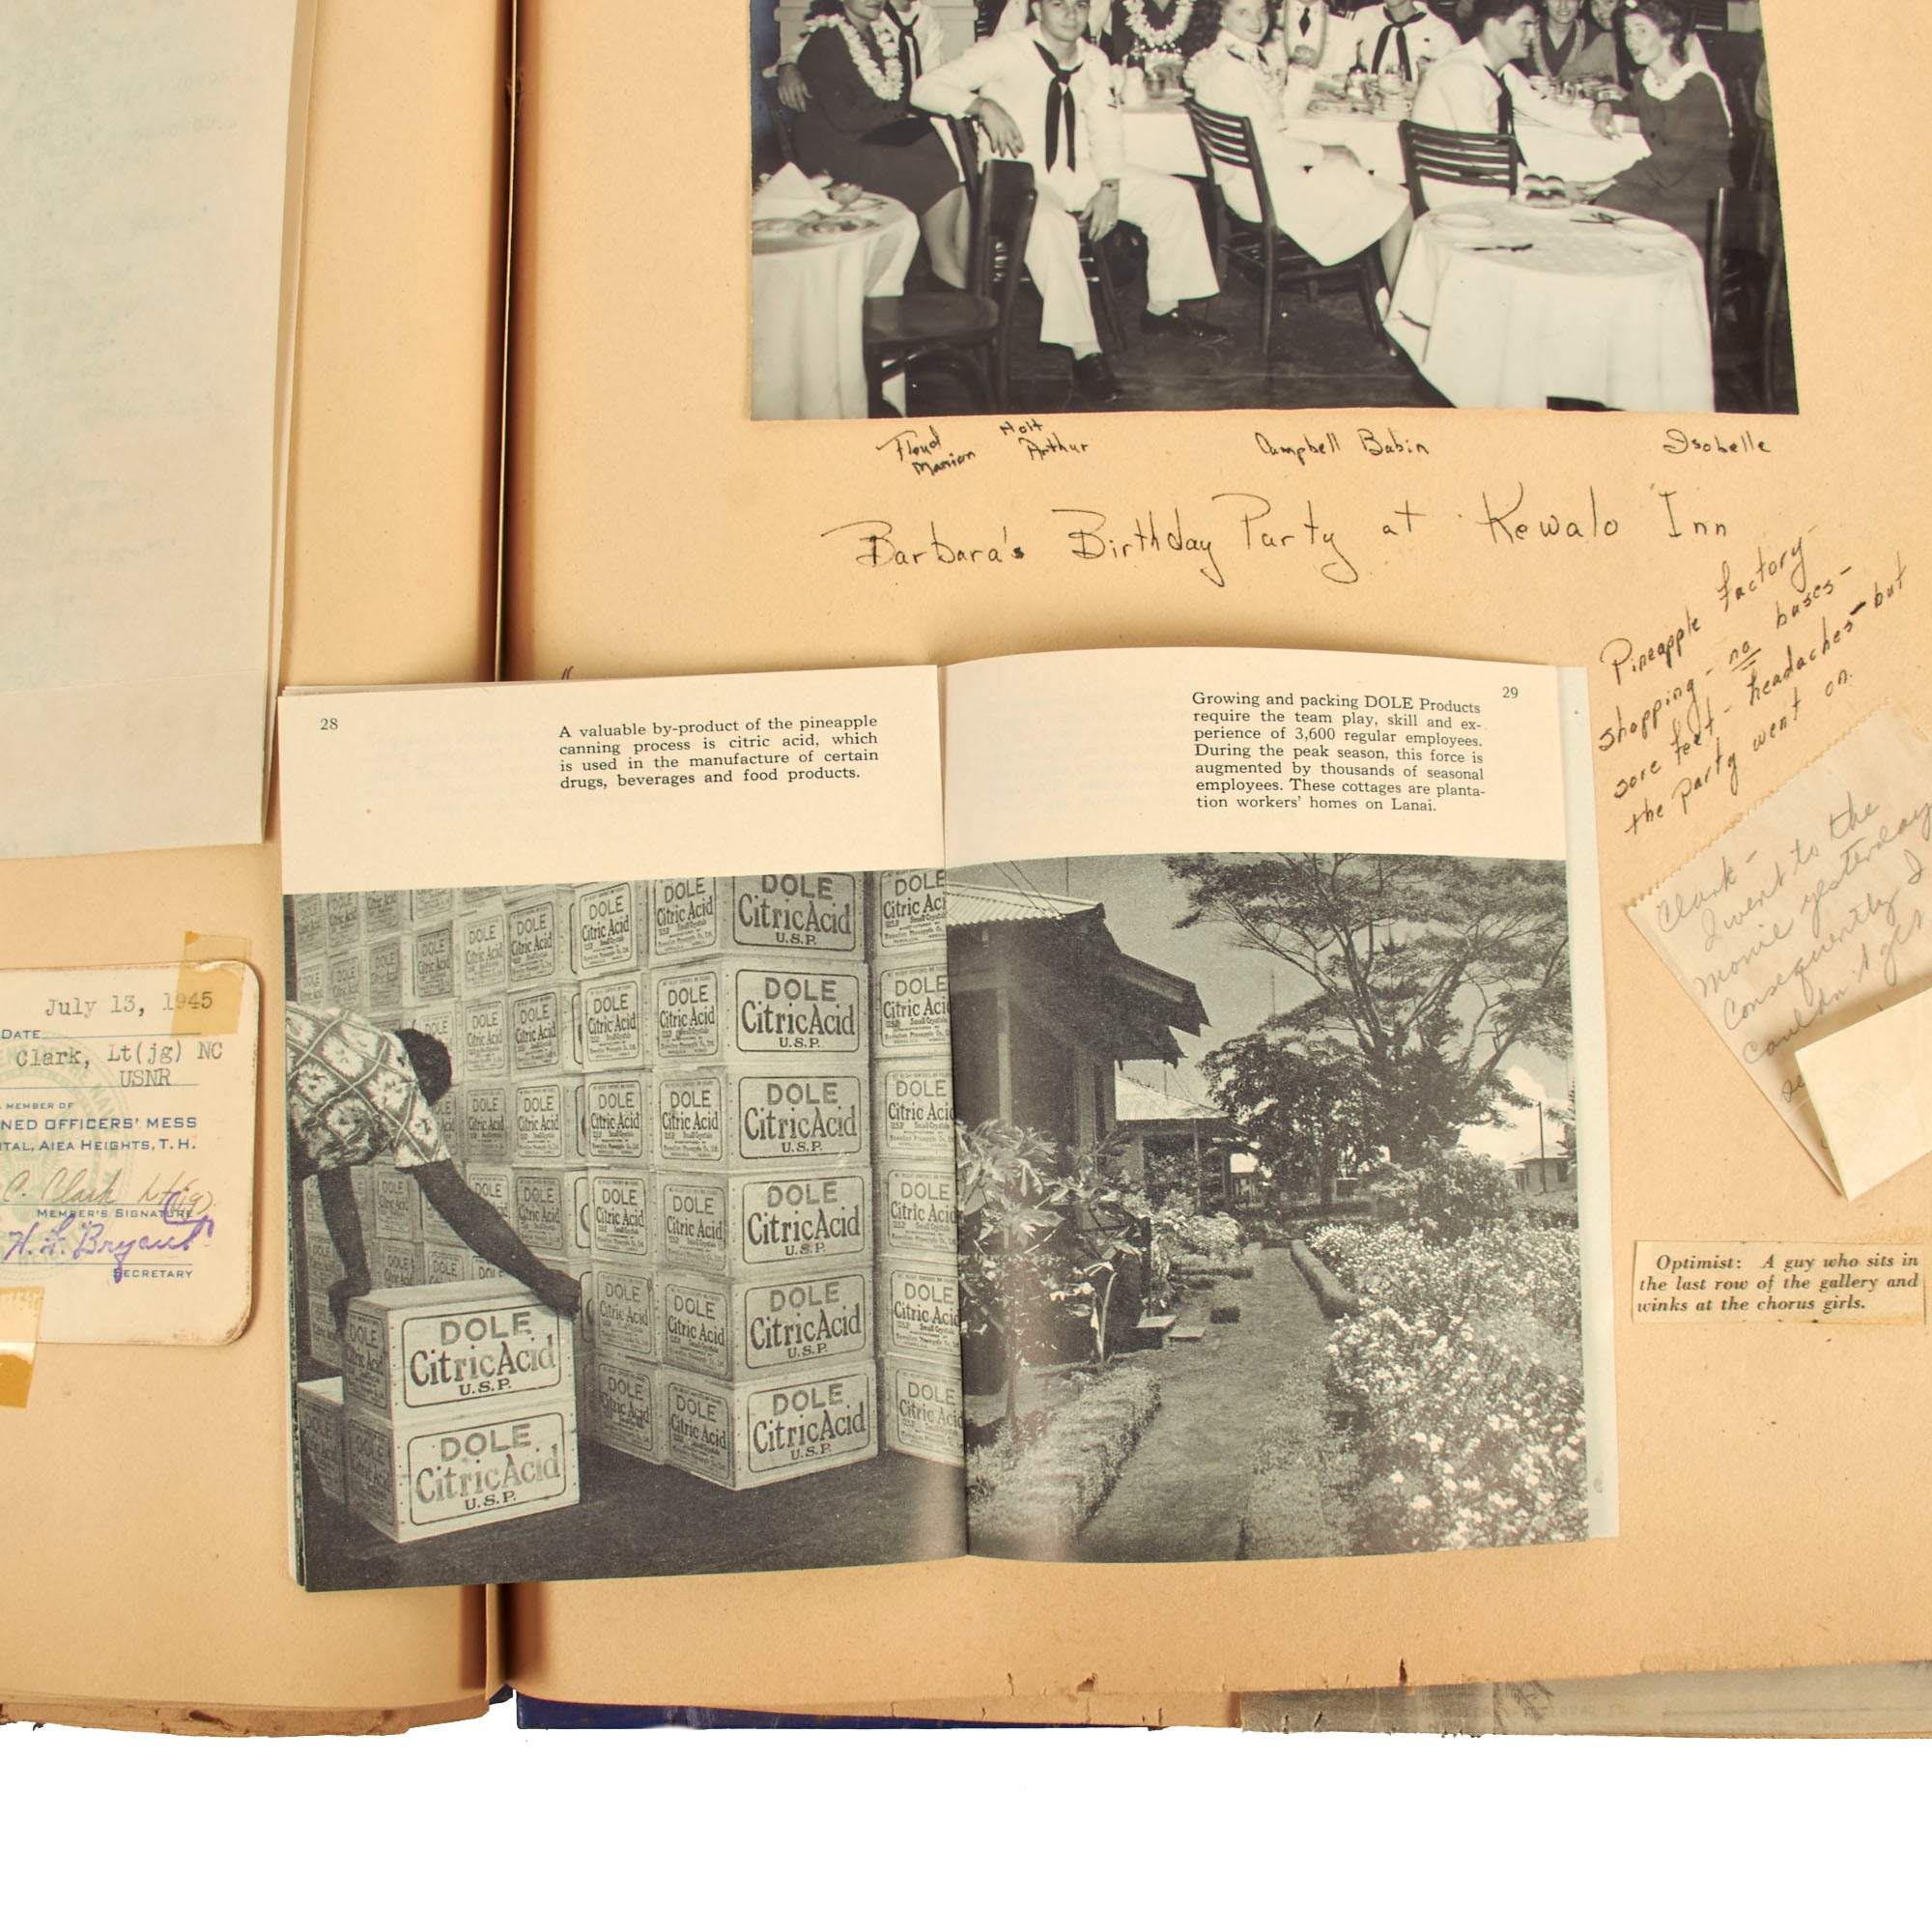 Floyd
Manion
Holt
Arthur
Campbell Babin
Isobelle
Barbara's Birthday Party at Kewalo Inn
Pineapple factory-
shopping - no buses -
sore feet - headaches - but
the party went on.
28
A valuable by-product of the pineapple
canning process is citric acid, which
is used in the manufacture of certain
drugs, beverages and food products.
29
Growing and packing DOLE Products
require the team play, skill and ex-
perience of 3,600 regular employees.
During the peak season, this force is
augmented by thousands of seasonal
employees. These cottages are planta-
tion workers' homes on Lanai.
DOLE
Citric Acid
U.S.P.
DOLE
Citric Acid
U.S.P.
DOLE
Citric Acid
U.S.P.
DOLE
Citric Acid
U.S.P.
DOLE
Citric Acid
U.S.P.
DOLE
Citric Acid
U.S.P.
DOLE
Citric Acid
U.S.P.
DOLE
Citric Acid
U.S.P.
July 13, 1945
DATE
Clark, Lt(jg) NC
USNR
A MEMBER OF
NED OFFICERS' MESS
ITAL, AIEA HEIGHTS, T. H.
C. Clark Lt(jg)
MEMBER'S SIGNATURE
H. L. Bryant
SECRETARY
Clark -
I went to the
movie yesterday
Consequently I
couldn't get
Optimist: A guy who sits in
the last row of the gallery and
winks at the chorus girls.